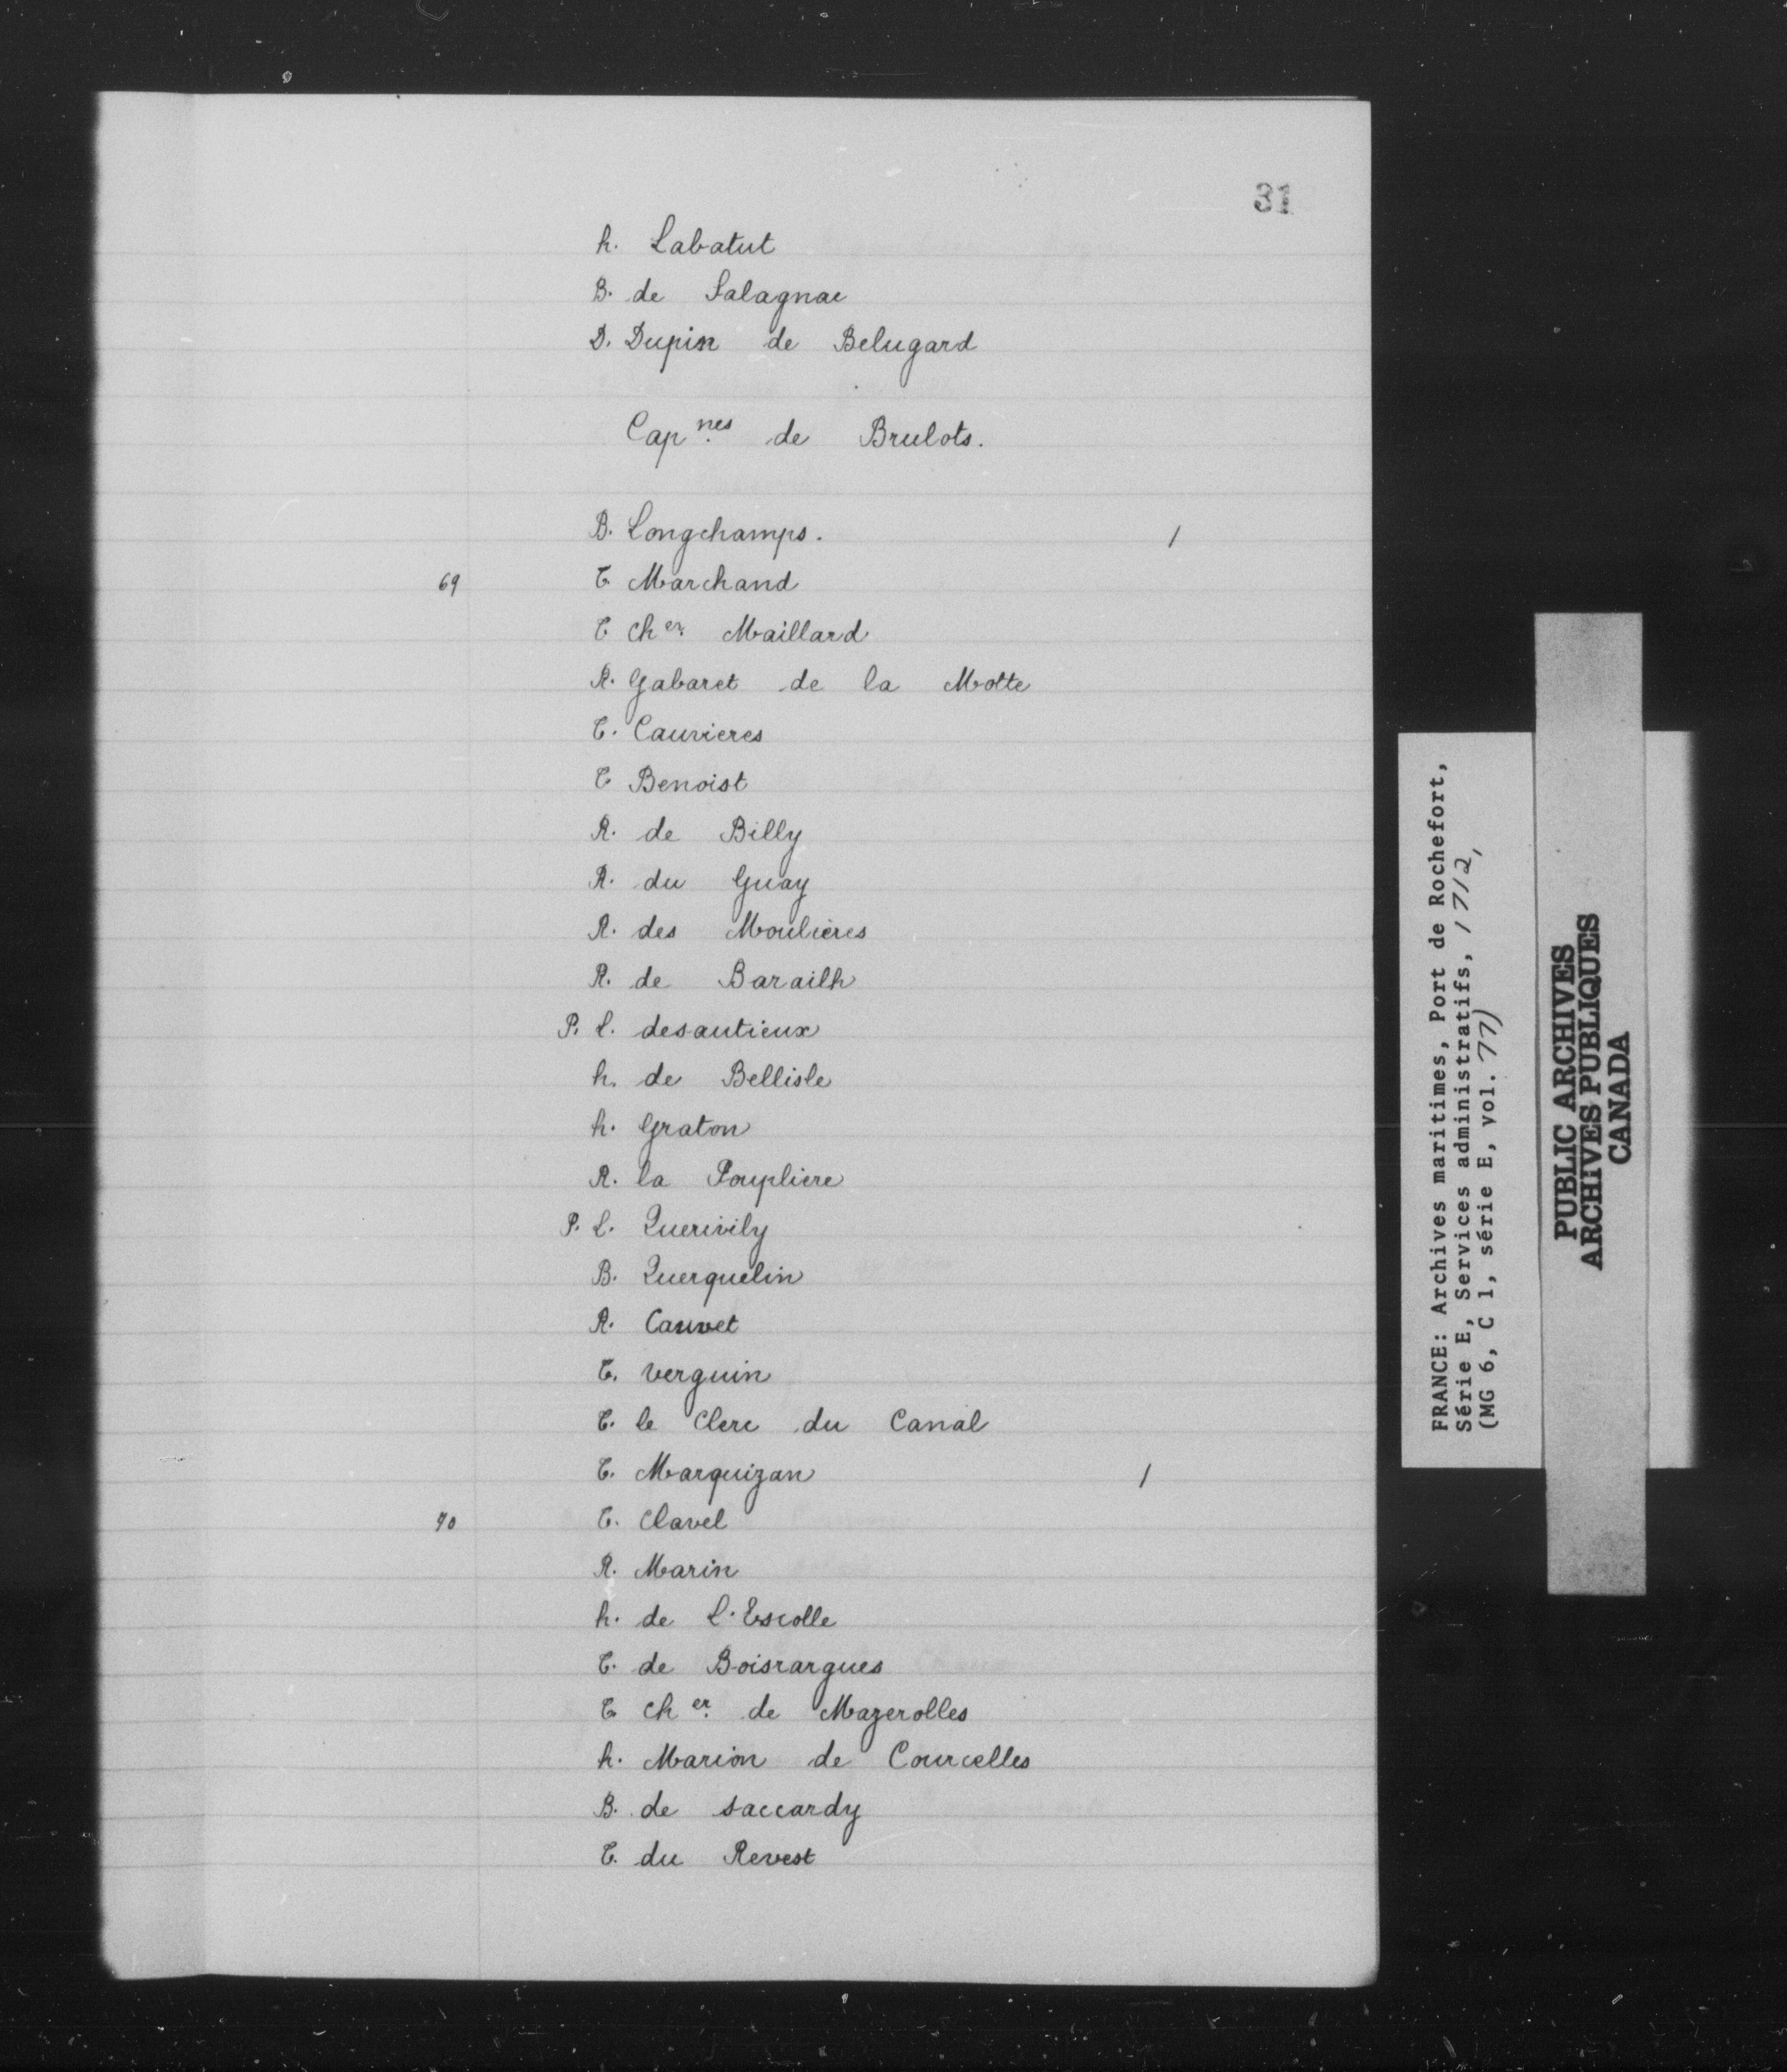 31
h. Labatut
B. de Salagnac
D. Dupin de Belugard
Cap.nes de Brulots.
B. Longchamps. /
69 T Marchand
T Cher. Maillard
R. Gabaret de la Motte
T. Cauvieres
T Benoist
R. de Billy
R. du Guay
R. des Moulieres
R. de Barailh
P. L. desautieux
h. de Bellisle
h. Graton
R. la Poupliere
P. L. Querivily
B. Querquelin
R. Cauvet
T. Verguin
T. le Clerc du Canal
T. Marquizan /
70 T. Clavel
R. Marin
h. de L'Escolle
T. de Boisrargues
T Cher. de Mazerolles
h. Marion de Courcelles
B. de saccardy
T. du Revest
FRANCE: Archives maritimes, Port de Rochefort,
Série E, Services administratifs, 1712,
(MG 6, C 1, série E, vol. 77)
PUBLIC ARCHIVES
ARCHIVES PUBLIQUES
CANADA